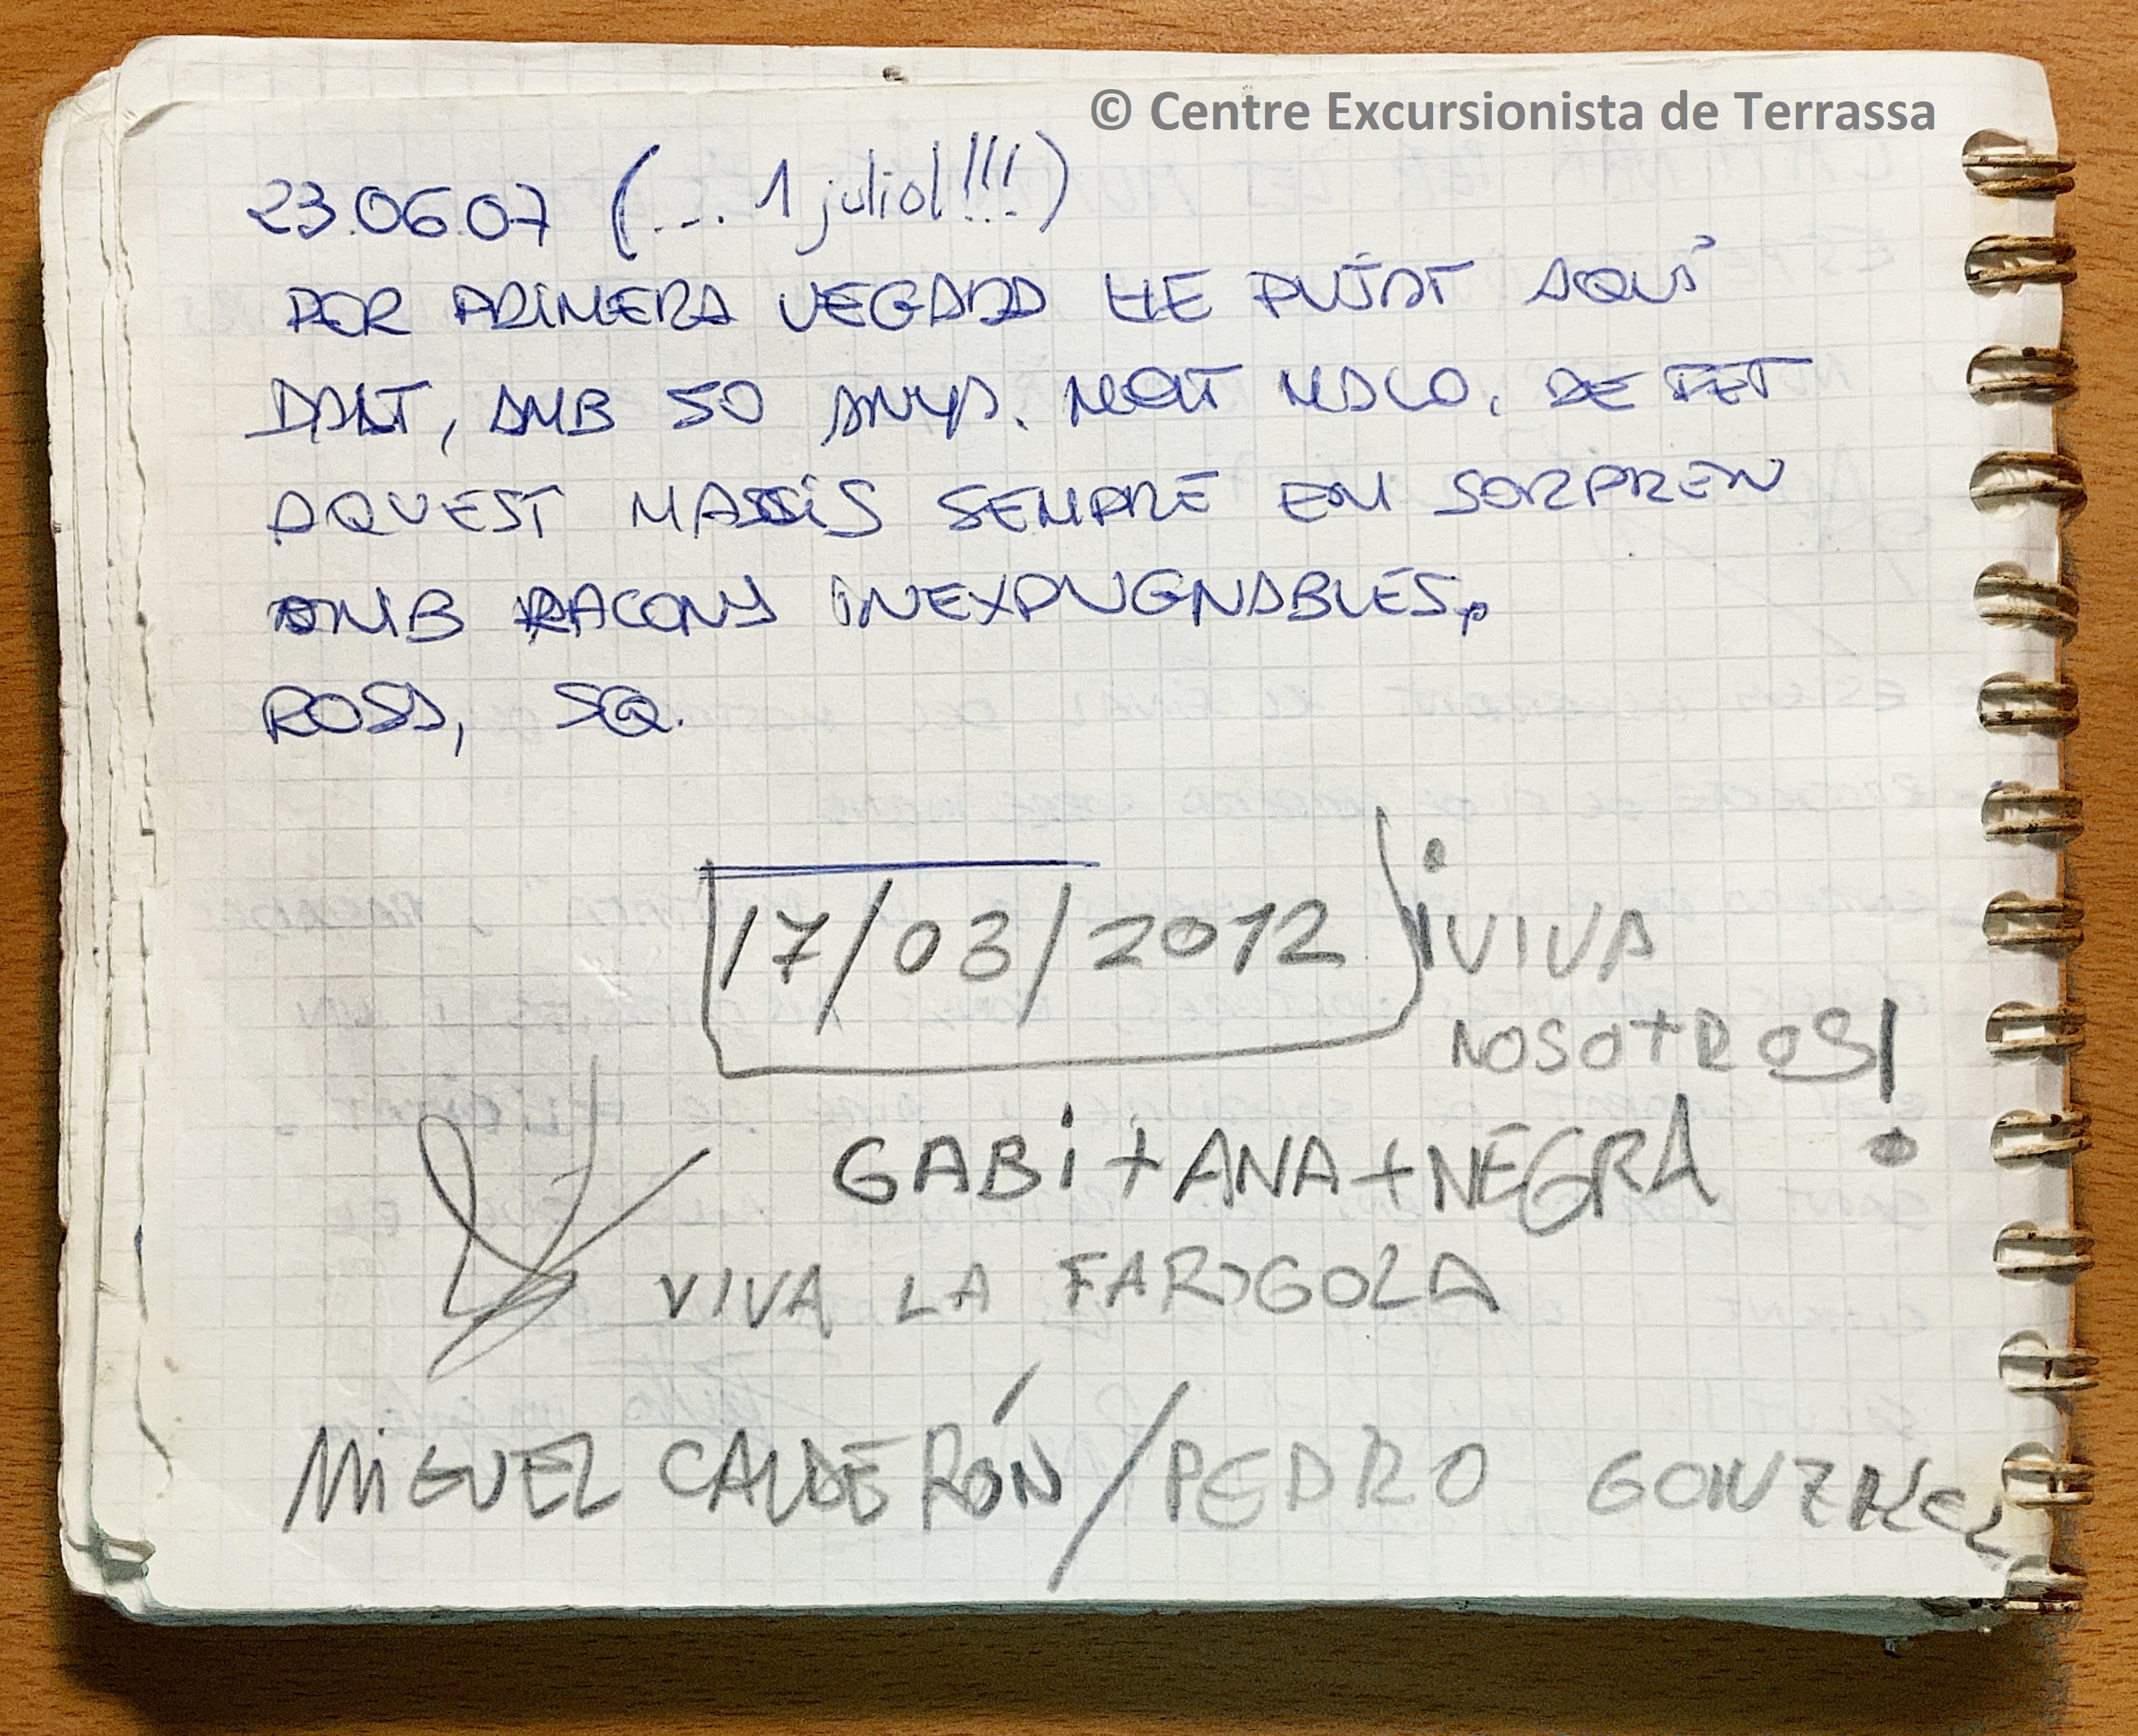 © Centre Excursionista de Terrassa
23.06.07 (... 1 juliol!!!)
PER PRIMERA VEGADA HE PUJAT AQUÍ
DALT, AMB 50 ANYS. MOLT MACO. DE FET
AQUEST MASSÍS SEMPRE EM SORPREN
AMB RACONS INEXPUGNABLES.
ROSA, SQ.
17/03/2012 ¡VIVA
NOSOTROS!
GABi+ANA+NEGRA
VIVA LA FARIGOLA
MiGUEL CALDERÓN/PEDRO GONZALEZ